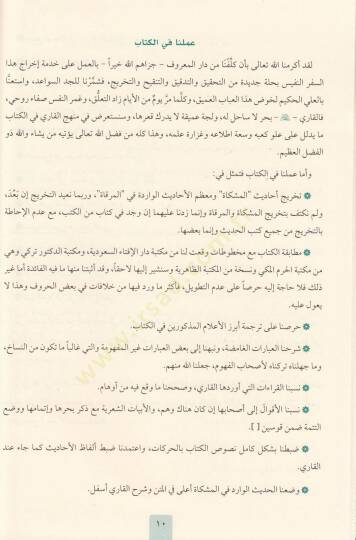 عملنا في الكتاب
لقد أكرمنا الله تعالى بأن كلّفَنَا من دار المعروف - جزاهم الله خيراً - بالعمل على خدمة إخراج هذا
السفر النفيس بحلة جديدة من التحقيق والتدقيق والتنقيح والتخريج، فشمَّرْنا للجد السواعد، واستعنَّا
بالعلي الحكيم لخوض هذا العباب العميق، وكلّما مرَّ يومٌ من الأيام زاد التعلُّق، وغمر النفس صفاء روحي،
فالقاري - - بحر لا ساحل له، ولجة عميقة لا يدرك قعرها، وسنستعرض في منهج القاري في الكتاب
ما يدلل على علو كعبه وسعة اطلاعه وغزارة علمه، وهذا كله من فضل الله تعالى يؤتيه من يشاء والله ذو
الفضل العظيم.
وأما عملنا في الكتاب فتمثل في:
تخريج أحاديث "المشكاة" ومعظم الأحاديث الواردة في "المرقاة"، وربما نعيد التخريج إن بَعُدَ،
ولم نكتف بتخريج المشكاة والمرقاة وإنما زدنا عليهما إن وجد في كتاب من الكتب، مع عدم الإحاطة
بالتخريج من جميع كتب الحديث وإنما بعضها.
مطابقة الكتاب مع مخطوطات وقعت لنا من مكتبة دار الإفتاء السعودية، ومكتبة الدكتور تركي وهي
من مكتبة الحرم المكي ونسخة من المكتبة الظاهرية وسنشير إليها لاحقاً، وقد أثبتنا منها ما فيه الفائدة أما غير
ذلك فلا حاجة إليه حرصاً على عدم التطويل، فأكثر ما ورد فيها من خلافات في بعض الحروف وهذا لا
يعول عليه.
حرصنا على ترجمة أبرز الأعلام المذكورين في الكتاب.
شرحنا العبارات الغامضة، ونبهنا إلى بعض العبارات غير المفهومة والتي غالباً ما تكون من النساخ،
وما جهلناه تركناه لأصحاب الفهوم، جعلنا الله منهم.
نسبنا القراءات التي أوردها القاري، وصححنا ما وقع فيه من أوهام.
نسبنا الأقوال إلى أصحابها إن كان هناك وهم، والأبيات الشعرية مع ذكر بحرها وإتمامها ووضع
التتمة ضمن قوسين [ ].
ضبطنا بشكل كامل نصوص الكتاب بالحركات، واعتمدنا ضبط ألفاظ الأحاديث كما جاء عند
القاري.
وضعنا الحديث الوارد في المشكاة أعلى في المتن وشرح القاري أسفل.
١٠